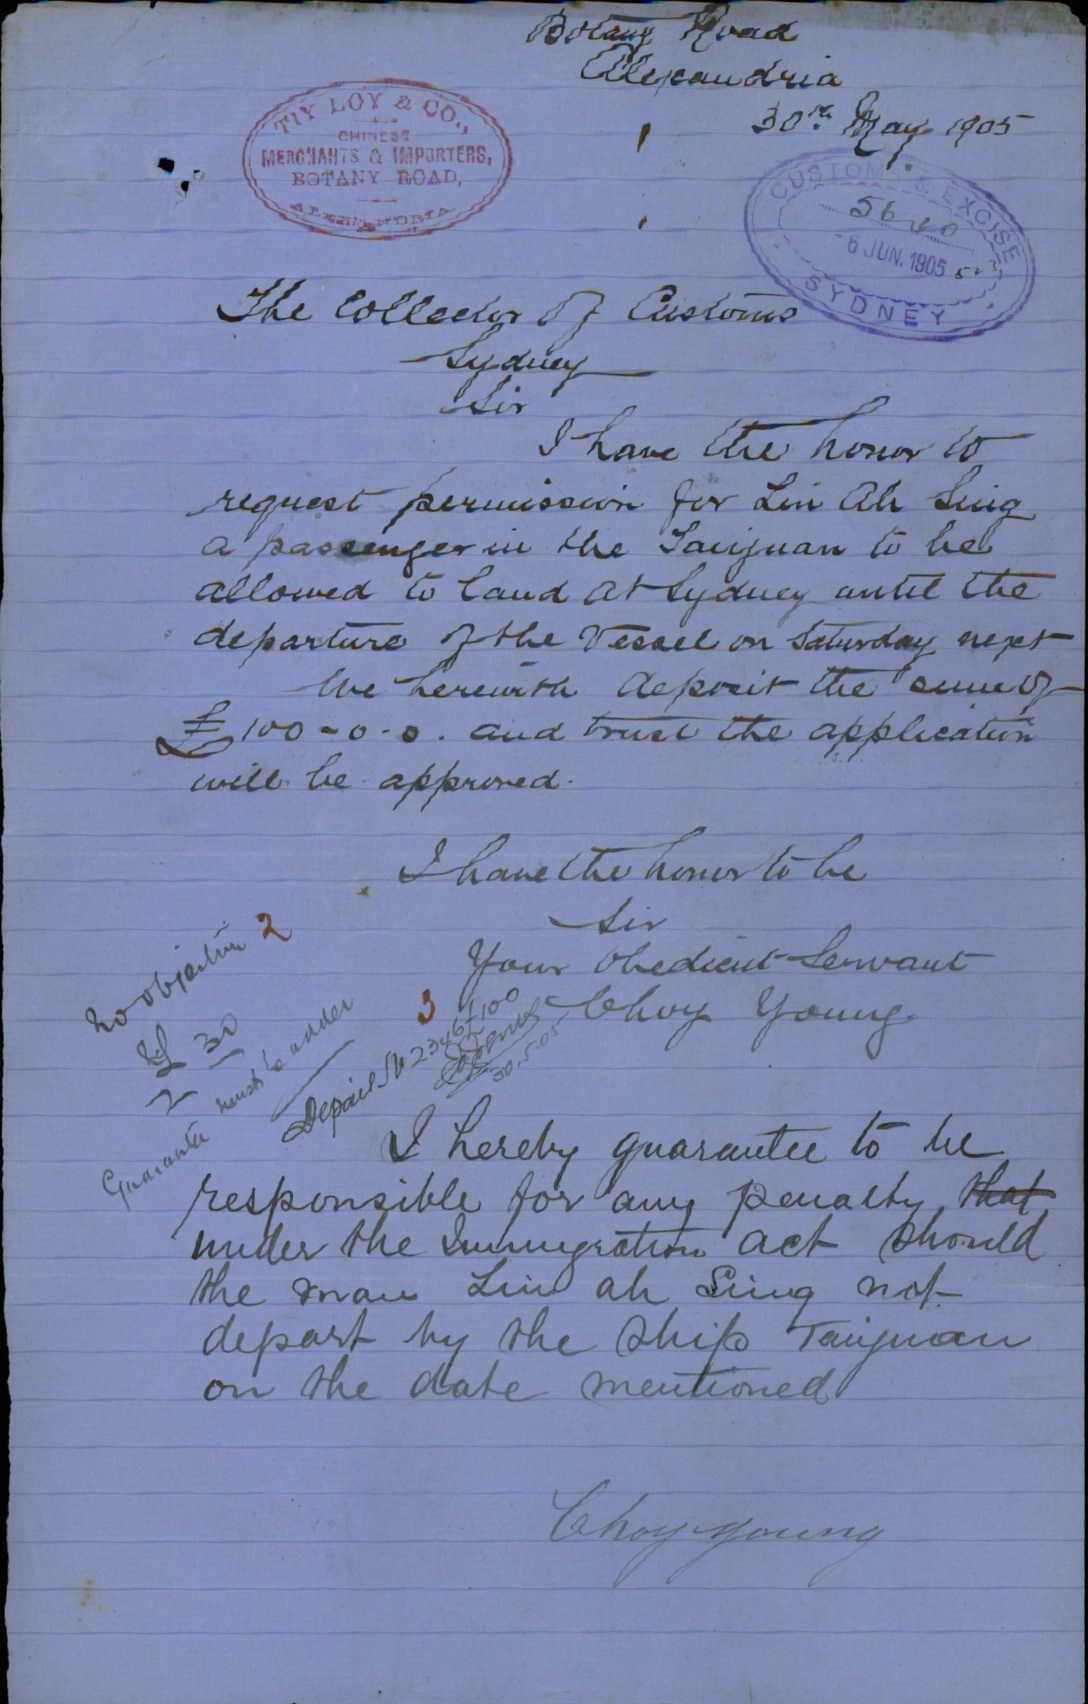 Botany Road
Alexandria
30th May 1905
TIY LOY & CO.,
CHINESE
MERCHANTS & IMPORTERS,
BOTANY ROAD,
ALEXANDRIA
CUSTOMS & EXCISE
-6 JUN. 1905
SYDNEY
The Collector of Customs
Sydney
Sir
I have the honor to
request permission for Lin Ah Sing
a passenger in the Taiyuan to be
allowed to land at Sydney until the
departure of the Vessel on Saturday next
We herewith deposit the sum of
£100-0-0. and trust the application
will be approved.
I have the honor to be
Sir
Your Obedient Servant
Choy Young
no objection 2
30
Guarantee must be under
3
Deposit 2346 £100
30.5.05
I hereby guarantee to be
responsible for any penalty that
under the Immigration act should
the man Lin ah Sing not
depart by the ship Taiyuan
on the date mentioned
Choy Young